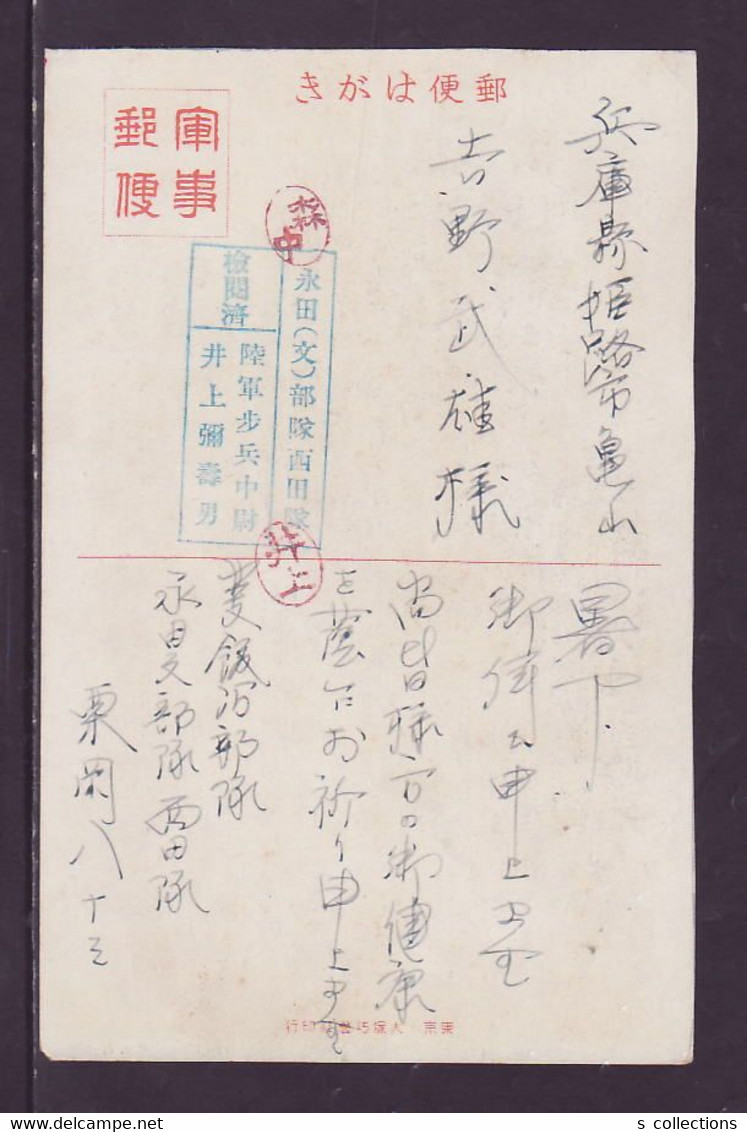 郵便はがき
軍事
郵便
兵庫縣姫路市亀山
吉野武雄様
森中
永田(文)部隊西田隊
檢閲濟
陸軍步兵中尉
井上彌壽男
井上
暑中
御伺ひ申上マス
尚皆様方の御健康
を蔭乍お祈り申上マス
飯沼部隊
永田文部隊西田隊
栗岡八十三
東京 印行
s collections